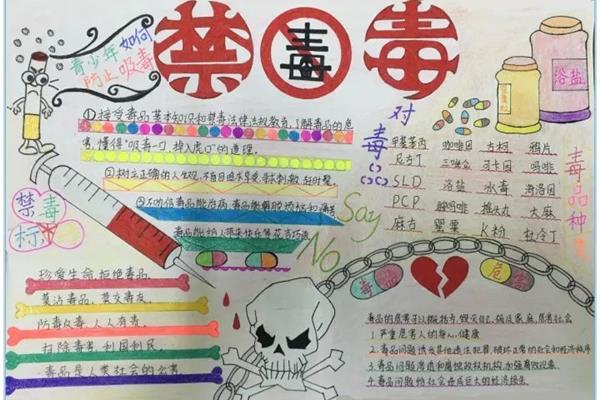 禁毒毒
青少年如何
防止吸毒
①接受毒品基本知识和禁毒法律法规教育,了解毒品的危
害,懂得"吸毒一口,掉入虎口"的道理。
②树立正确的人生观,不盲目追求享受,寻求刺激,赶时髦。
③不听信毒品能治病,毒品能解脱烦恼和痛苦
毒品能给人带来快乐等花言巧语
对毒
Say
No
浴盐
甲基苯丙 咖啡因 古柯 鸦片
尼古丁 三唑仑 可卡因 吗啡
SLD 浴盐 冰毒 海洛因
PCP 摇头丸 大麻
麻古 罂粟 K粉 杜冷丁
毒品种类
禁毒
标语
珍爱生命,拒绝毒品。
莫沾毒品,莫交毒友。
防毒反毒,人人有责。
扫除毒害,利国利民。
毒品是人类社会的公害
毒品 危害
毒品的危害可以概括为,毁灭自己,祸及家庭,危害社会
1.严重危害人的身心健康
2.毒品问题诱发其他违法犯罪,破坏正常的社会和经济秩序
3.毒品问题渗透和腐蚀政权机构,加强腐败现象。
4.毒品问题给社会造成巨大的经济损失